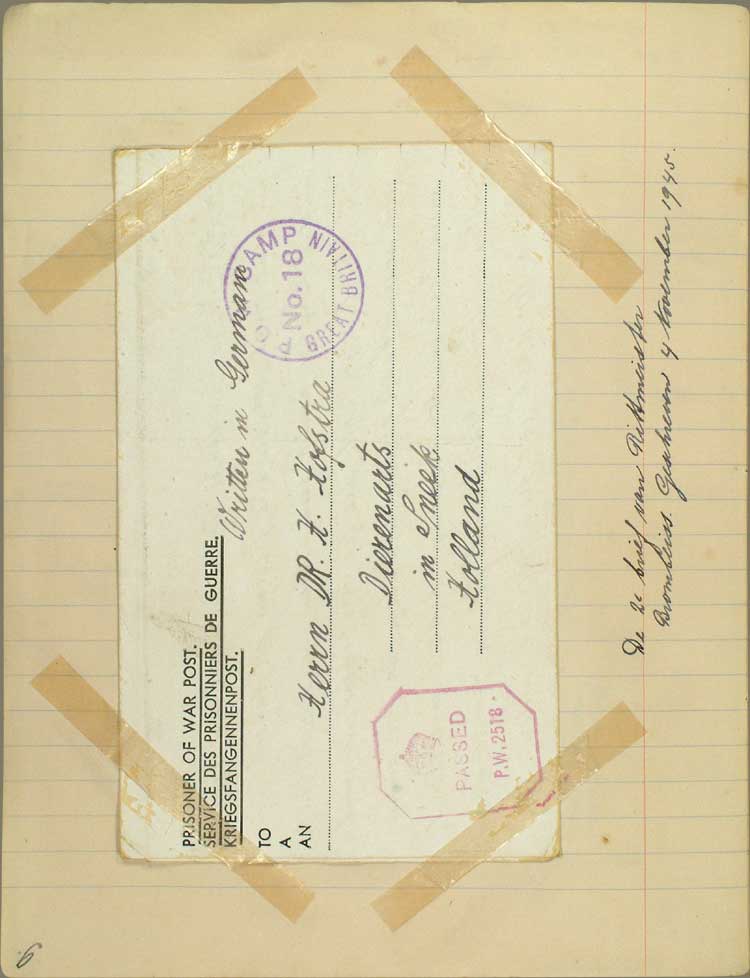 PRISONER OF WAR POST.
SERVICE DES PRISONNIERS DE GUERRE.
KRIEGSFANGENNENPOST.
Written in German
CAMP
No. 18
GREAT BRITAIN
TO
A
AN
Herrn DR. H. Hofstra
Dierenarts
in Sneek
Holland
PASSED
P.W. 2518
De 2e brief van Rittmeister
Geschreven 4 November 1945.
6